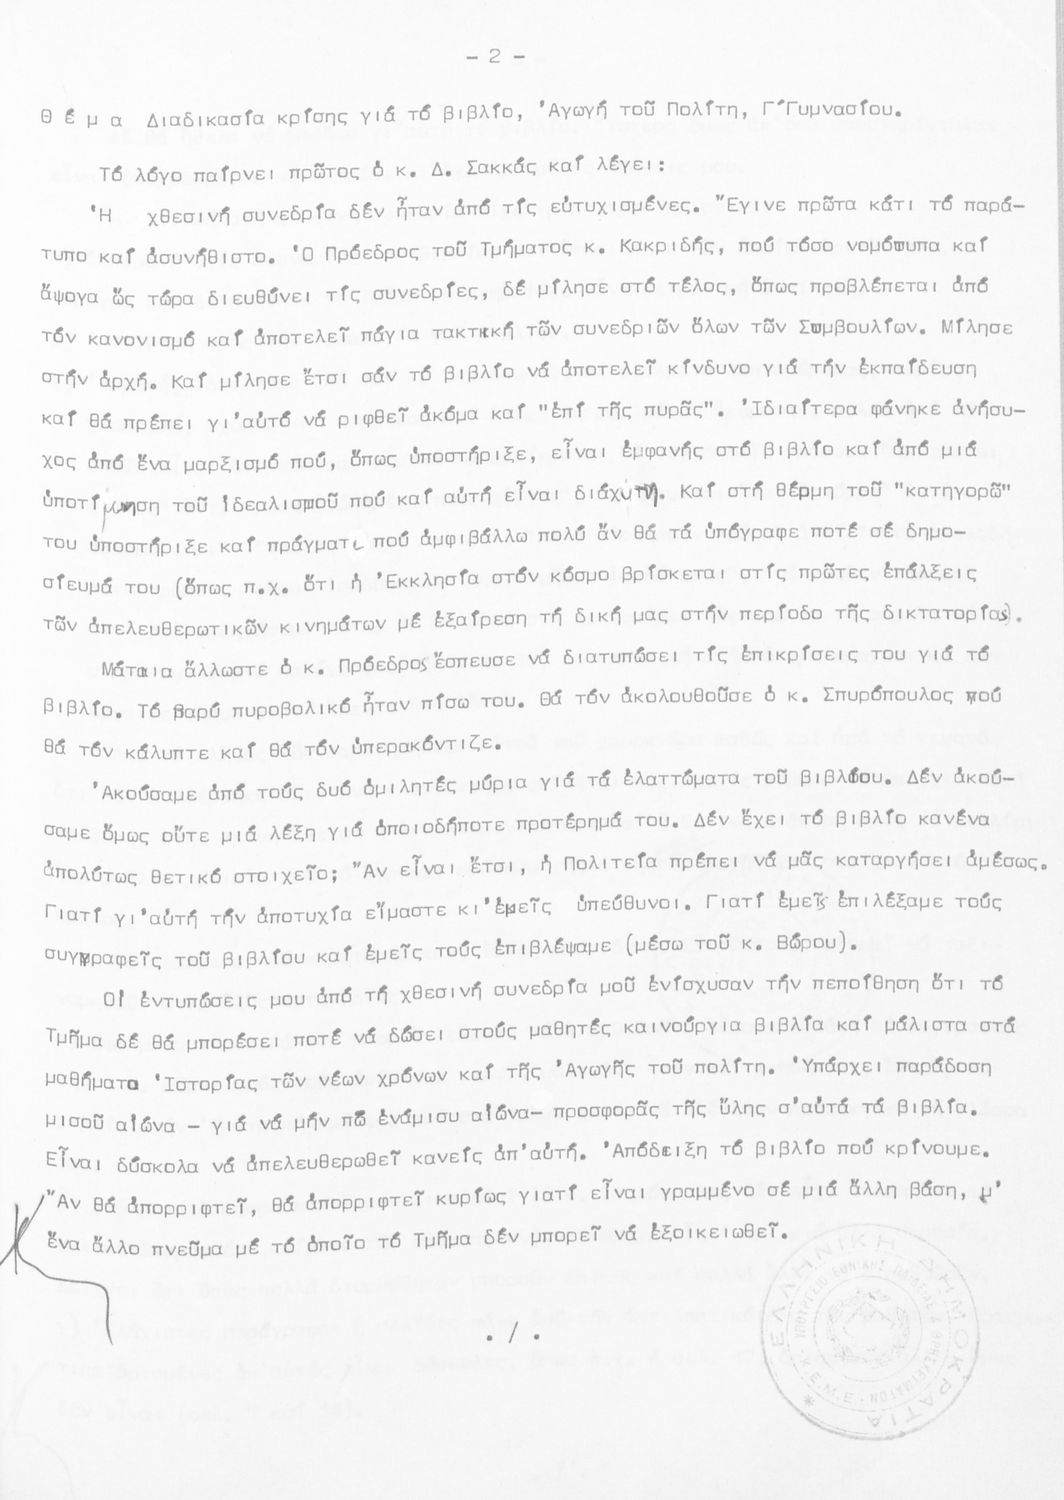 - 2 -
Θ έ μ α Διαδικασία κρίσης γιά τό βιβλίο, 'Αγωγή τοῦ Πολίτη, Γ'Γυμνασίου.
Τό λόγο παίρνει πρῶτος ὁ κ. Δ. Σακκάς καί λέγει:
'Η χθεσινή συνεδρία δέν ἦταν ἀπό τίς εὐτυχισμένες. Ἔγινε πρῶτα κάτι τό παρά-
τυπο καί ἀσυνήθιστο. 'Ο Πρόεδρος τοῦ Τμήματος κ. Κακριδής, πού τόσο νομότυπα καί
ἄψογα ὥς τώρα διευθύνει τίς συνεδρίες, δέ μίλησε στό τέλος, ὅπως προβλέπεται ἀπό
τόν κανονισμό καί ἀποτελεῖ πάγια τακτική τῶν συνεδριῶν ὅλων τῶν Συμβουλίων. Μίλησε
στήν ἀρχή. Καί μίλησε ἔτσι σάν τό βιβλίο νά ἀποτελεῖ κίνδυνο γιά τήν ἐκπαίδευση
καί θά πρέπει γι'αὐτό νά ριφθεῖ ἀκόμα καί "ἐπί τῆς πυρᾶς". 'Ιδιαίτερα φάνηκε ἀνήσυ-
χος ἀπό ἕνα μαρξισμό πού, ὅπως ὑποστήριξε, εἶναι ἐμφανής στό βιβλίο καί ἀπό μιά
ὑποτίμηση τοῦ ἰδεαλισμοῦ πού καί αὐτή εἶναι διάχυτη. Καί στή θέρμη τοῦ "κατηγορῶ"
του ὑποστήριξε καί πράγματι πού ἀμφιβάλλω πολύ ἄν θά τά ὑπόγραφε ποτέ σέ δημο-
σίευμά του (ὅπως π.χ. ὅτι ἡ 'Εκκλησία στόν κόσμο βρίσκεται στίς πρῶτες ἐπάλξεις
τῶν ἀπελευθερωτικῶν κινημάτων μέ ἐξαίρεση τή δική μας στήν περίοδο τῆς δικτατορίας).
Μάταια ἄλλωστε ὁ κ. Πρόεδρος ἔσπευσε νά διατυπώσει τίς ἐπικρίσεις του γιά τό
βιβλίο. Τό βαρύ πυροβολικό ἦταν πίσω του. Θά τόν ἀκολουθοῦσε ὁ κ. Σπυρόπουλος πού
θά τόν κάλυπτε καί θά τόν ὑπερακόντιζε.
'Ακούσαμε ἀπό τούς δυό ὁμιλητές μύρια γιά τά ἐλαττώματα τοῦ βιβλίου. Δέν ἀκού-
σαμε ὅμως οὔτε μιά λέξη γιά ὁποιοδήποτε προτέρημά του. Δέν ἔχει τό βιβλίο κανένα
ἀπολύτως θετικό στοιχεῖο; Ἄν εἶναι ἔτσι, ἡ Πολιτεία πρέπει νά μᾶς καταργήσει ἀμέσως.
Γιατί γι'αὐτή τήν ἀποτυχία εἴμαστε κι'ἐμεῖς ὑπεύθυνοι. Γιατί ἐμεῖς ἐπιλέξαμε τούς
συγγραφεῖς τοῦ βιβλίου καί ἐμεῖς τούς ἐπιβλέψαμε (μέσω τοῦ κ. Βώρου).
Οἱ ἐντυπώσεις μου ἀπό τή χθεσινή συνεδρία μοῦ ἐνίσχυσαν τήν πεποίθηση ὅτι τό
Τμῆμα δέ θά μπορέσει ποτέ νά δώσει στούς μαθητές καινούργια βιβλία καί μάλιστα στά
μαθήματα 'Ιστορίας τῶν νέων χρόνων καί τῆς 'Αγωγῆς τοῦ πολίτη. 'Υπάρχει παράδοση
μισοῦ αἰώνα - γιά νά μήν πῶ ἐνάμισυ αἰώνα- προσφορᾶς τῆς ὕλης σ'αὐτά τά βιβλία.
Εἶναι δύσκολα νά ἀπελευθερωθεῖ κανείς ἀπ'αὐτή. 'Απόδειξη τό βιβλίο πού κρίνουμε.
Ἄν θά ἀπορριφτεῖ, θά ἀπορριφτεῖ κυρίως γιατί εἶναι γραμμένο σέ μιά ἄλλη βάση, μ'
ἕνα ἄλλο πνεῦμα μέ τό ὁποῖο τό Τμῆμα δέν μπορεῖ νά ἐξοικειωθεῖ.
. / .
ΕΛΛΗΝΙΚΗ ΔΗΜΟΚΡΑΤΙΑ
ΥΠΟΥΡΓΕΙΟ ΕΘΝΙΚΗΣ ΠΑΙΔΕΙΑΣ & ΘΡΗΣΚΕΥΜΑΤΩΝ
Κ.Ε.Μ.Ε.